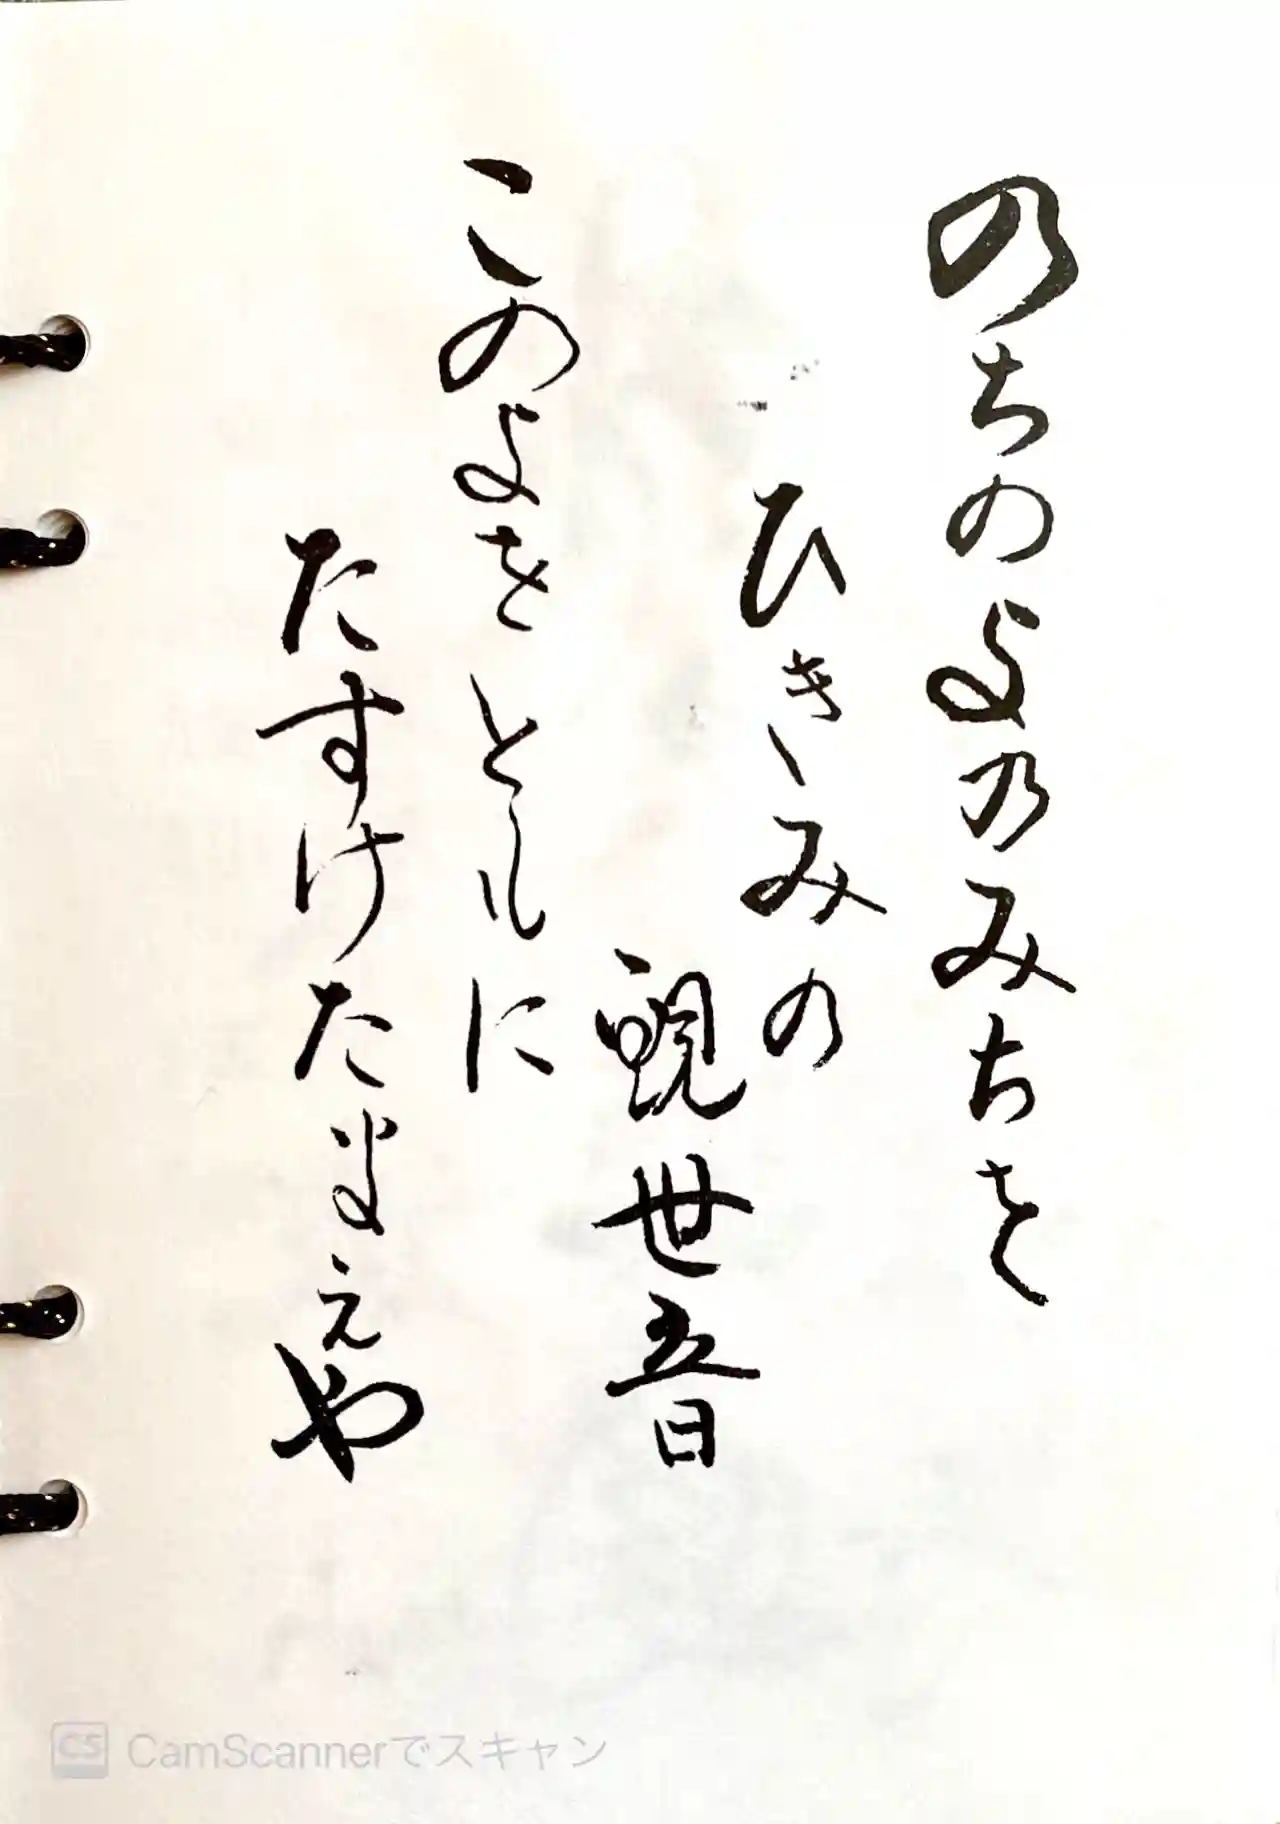 のちのよのみちを
ひきみの
観世音
このよをともに
たすけたまえや
CS CamScannerでスキャン